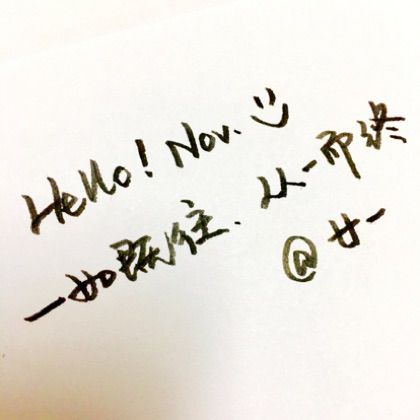 Hello! Nov.
一如既往.从一而终
@廿一